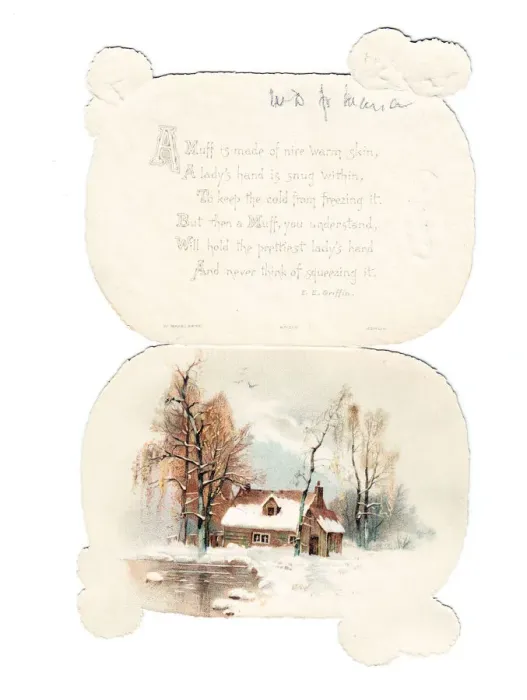 A Muff is made of nice warm skin,
A lady's hand is snug within,
To keep the cold from freezing it.
But then a Muff, you understand,
Will hold the prettiest lady's hand
And never think of squeezing it.
E. E. Griffin.